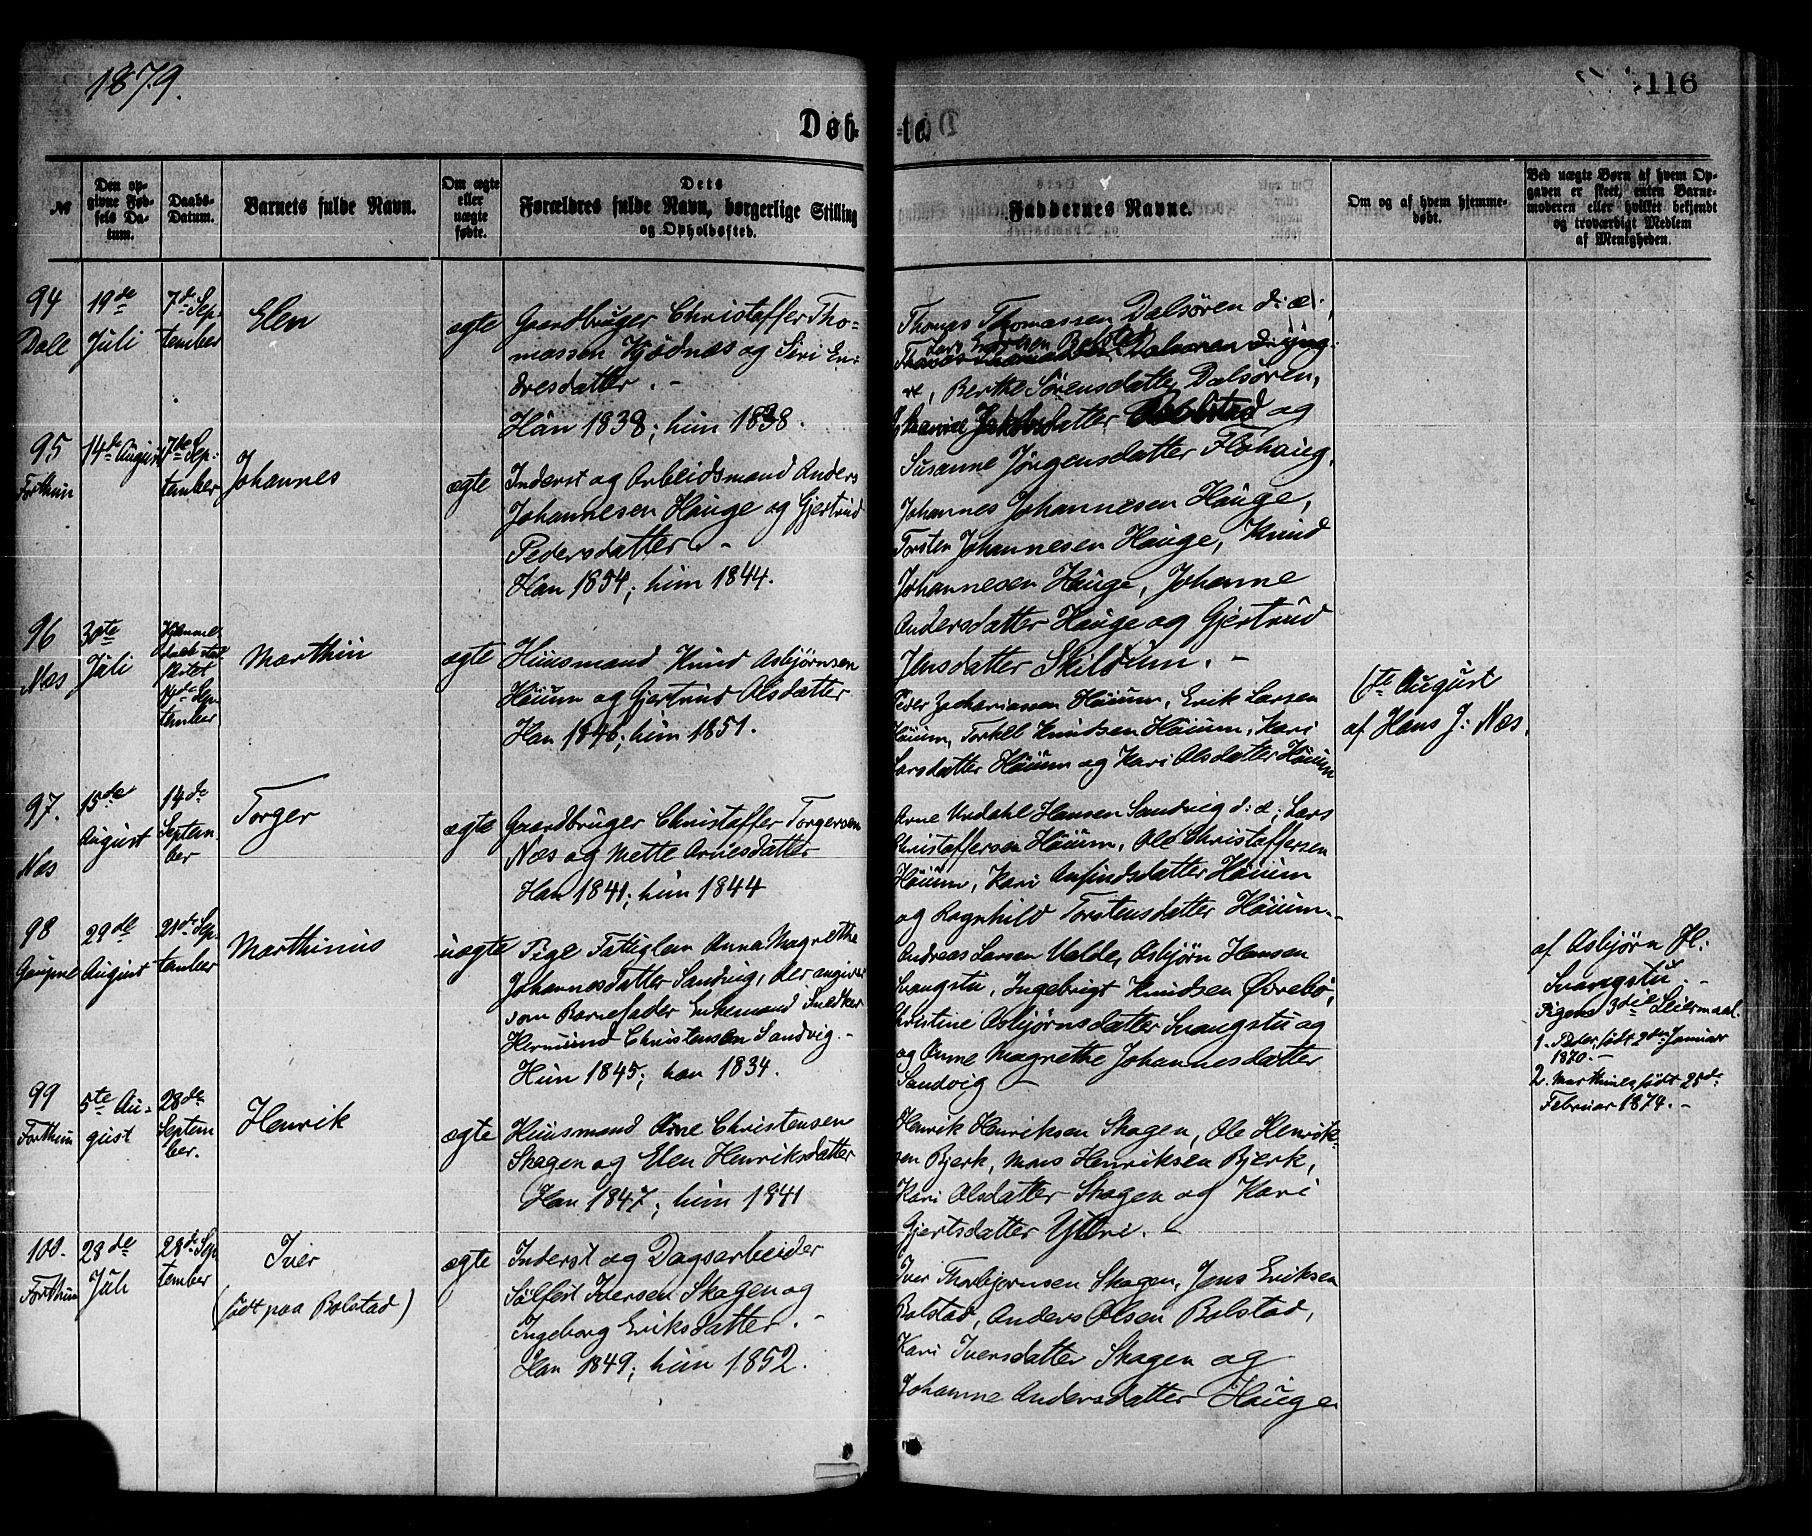 1879.
116
Døb-
te.
№
Den op-
givne Fød-
sels Da-
tum.
Daabs-
Datum.
Barnets fulde Navn.
Om ægte
eller
uægte
fødte.
Dets
Forældres fulde Navn, borgerlige Stilling
og Opholdssted.
Faddernes Navne.
Om og af hvem hjemme-
døbt.
Ved uægte Børn af hvem Op-
gaven er skeet, enten Barne-
moderen eller hvilket bekjendt
og troværdigt Medlem
af Menigheden.
94
Dale
19de
Juli
7de Sep-
tember
Elen
ægte
Gaardbruger Christaffer Tho-
massen Kjødnæs og Siri En-
dresdatter. -
Han 1838; hun 1838.
Thomas Thomassen Dalsøren d: æ:,
Lars Bolstad
Dalsøren d: yng-
re, Berthe Sørensdatter Dalsøren,
Jakobsdatter Bolstad og
Susanne Jørgensdatter Flahaug.
95
Forthun
14de August
7de Sep-
tember
Johannes
ægte
Inderst og Arbeidsmand Anders
Johannesen Hauge og Gjertrud
Pedersdatter. -
Han 1854; hun 1844.
Johannes Johannesen Hauge,
Torsten Johannesen Hauge, Knud
Johannesen Hauge, Johanne
Andersdatter Hauge og Gjertrud
Jensdatter Skildum. -
96
Næs
30te
Juli
Hjemme-
daab stad-
fæstet
14de Sep-
tember
Marthin
ægte
Huusmand Knud Asbjørnsen
Høium og Gjertrud Olsdatter
Han 1846; hun 1851.
Peder Zachariassen Høium, Erik Larsen
Høium, Torkel Knudsen Høium, Kari
Larsdatter Høium og Kari Olsdatter Høium
6te August
af Hans J: Næs.
97.
Næs
15de
August
14de
Septem-
ber
Torger
ægte
Gaardbruger Christaffer Torgersen
Næs og Mette Arnesdatter
Han 1841; hun 1844
Arne Undahl Hansen Sandvig d: æ:, Lars
Christaffersen Høium, Ole Christaffersen
Høium, Kari Anfindsdatter Høium
og Ragnhild Torstensdatter Høium. -
98
Gaupne
29de
August
21de Sep-
tember
Marthinus
uægte
Pige Fattiglem Anna Magrethe
Johannesdatter Sandvig, der angiver
som Barnefader Enkemand Snedker
Hermund Christensen Sandvig. -
Hun 1845; han 1834.
Andreas Larsen Valde, Asbjørn Hansen
Svangstu, Ingebrigt Knudsen Øvrebø,
Christine Asbjørnsdatter Svangstu og
og Anne Magrethe Johannesdatter
Sandvig -
af Asbjørn H:
Svangstu. -
Pigens 3die Leiermaal.
1. Peder, født 9de Januar
1870. -
2. Marthines født 25de
Februar 1874. -
99
Forthun
5te Au-
gust
28de
Septem-
ber.
Henrik
ægte
Huusmand Arne Christensen
Skagen og Elen Henriksdatter
Han 1847; hun 1841
Henrik Henriksen Skagen, Ole Henrik-
sen Bjerk, Mons Henriksen Bjerk,
Kari Olsdatter Skagen og Kari
Gjertsdatter Yttri. -
100.
Forthun
28de
Juli
28de Sep-
tember
Iver
(født paa Bolstad)
ægte
Inderst og Dagsarbeider
Sølfest Iversen Skagen og
Ingeborg Eriksdatter. -
Han 1849; hun 1852.
Iver Thorbjørnsen Skagen, Jens Eriksen
Bolstad, Anders Olsen Bolstad,
Kari Iversdatter Skagen og
Johanne Andersdatter Hauge.